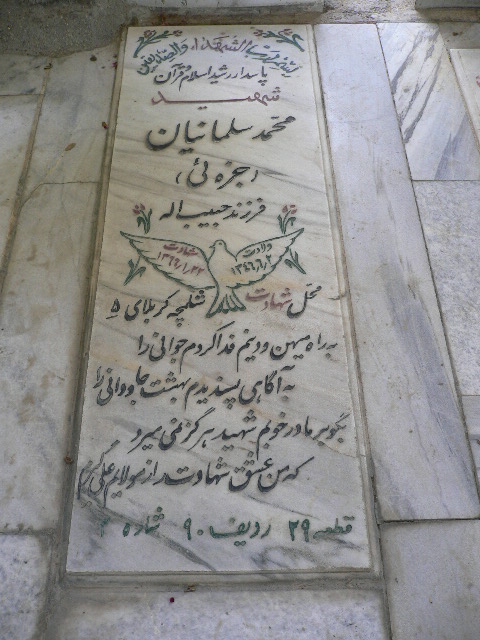 بسم رب الشهداء والصدیقین
پاسدار رشید اسلام و قرآن
شهید
محمد سلمانیان
(جزه ئی)
فرزند حبیب اله
ولادت
۱۳۴۶/۶/۲
شهادت
محل شهادت شلمچه کربلای ۵
به راه میهن و دینم فدا کردم جوانی را
به آگاهی پسندیدم بهشت جاودانی را
بگو بر مادر خوبم شهید هرگز نمی میرد
که من عشق شهادت را ز مولایم علی
قطعه ۲۹ ردیف ۹۰ شماره